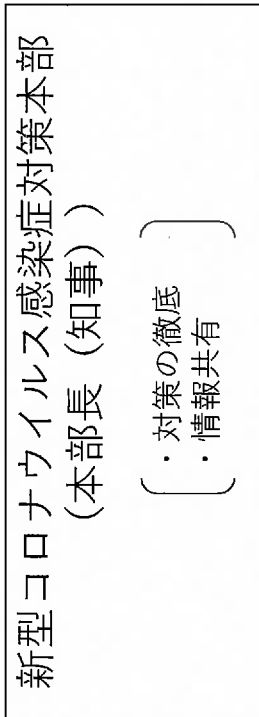 新型コロナウイルス感染症対策本部
（本部長（知事））
・対策の徹底
・情報共有